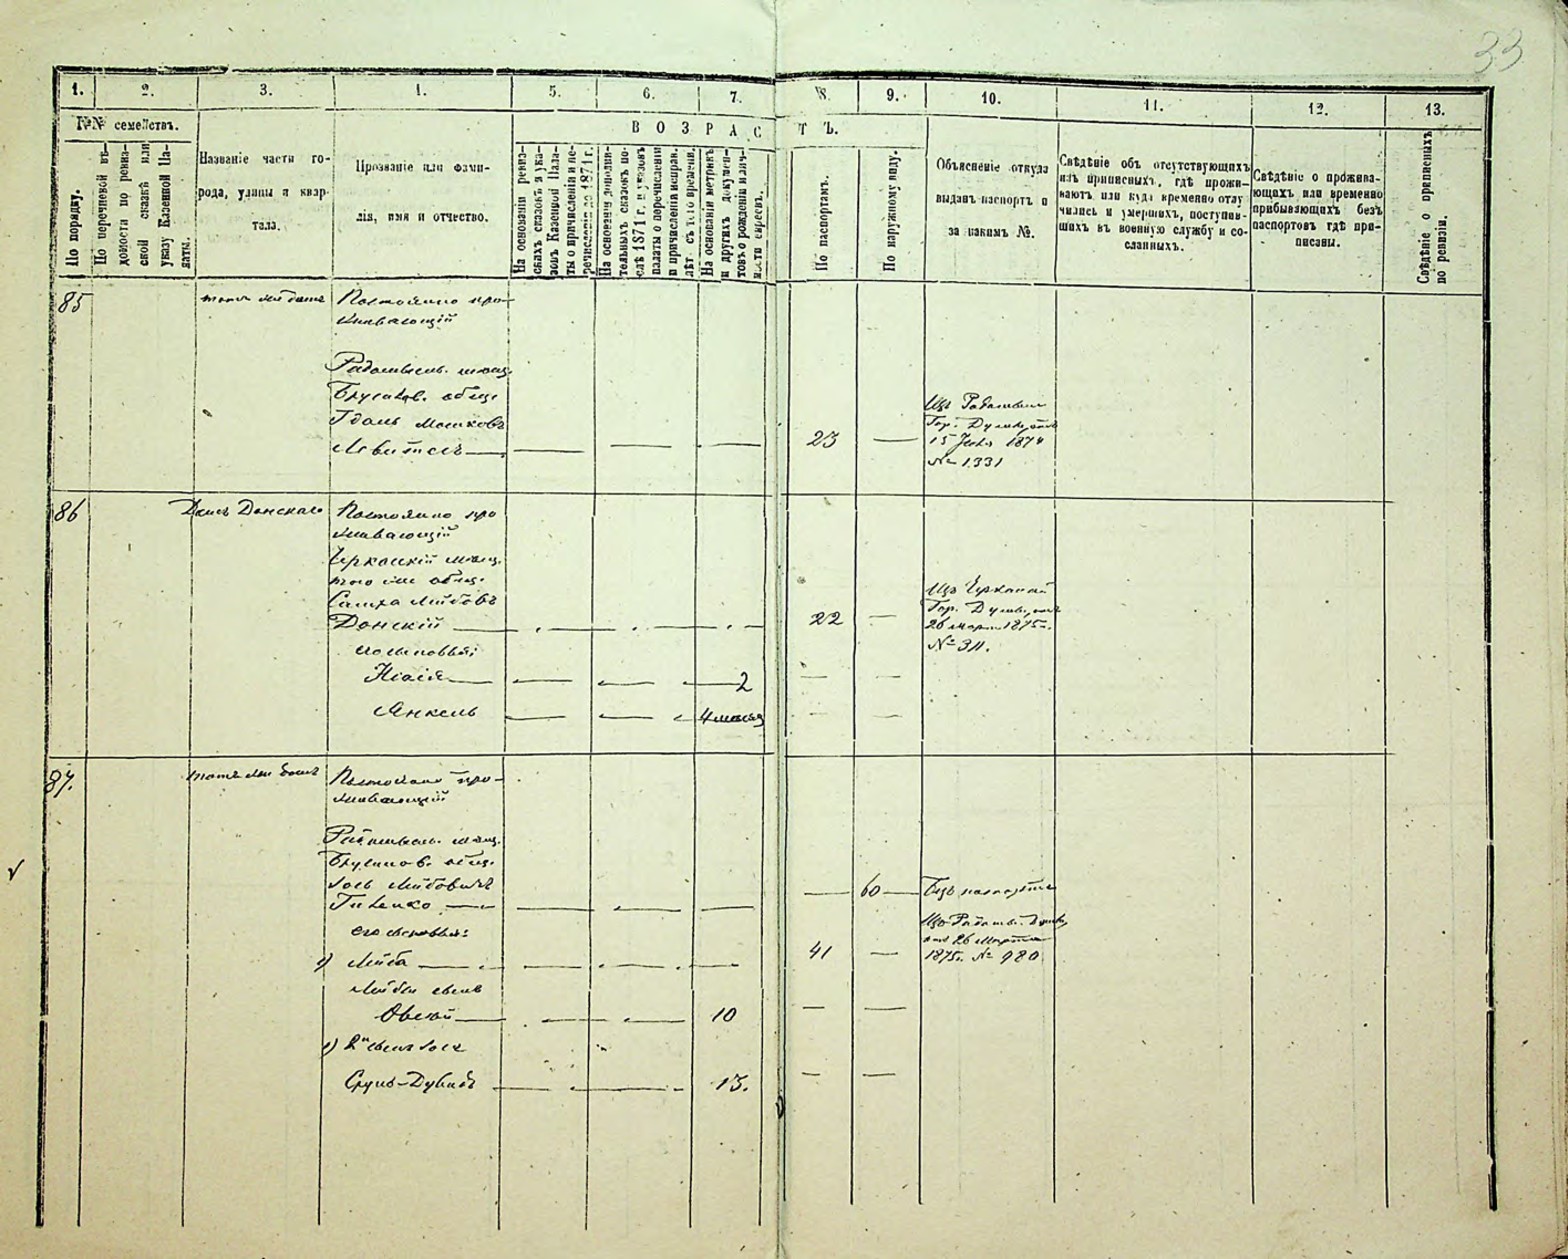 33
1. 2. 3. 4. 5. 6. 7. 8. 9. 10. 11. 12. 13.
№№ семействъ.
По порядку.
По перечневой вѣ-
домости по ревиз-
ской сказкѣ или
указу Казенной Па-
латы.
Названіе части го-
рода, улицы и квар-
тала.
Прозваніе или фами-
лія, имя и отчество.
ВОЗРАСТЪ.
На основаніи ревиз-
скихъ сказокъ и ука-
зовъ Казенной Пала-
ты о причисленіи и пе-
речисленіи до 1871 г.
На основаніи дополни-
тельныхъ сказокъ по-
слѣ 1871 г. и указовъ
палаты о перечисленіи
и причисленіи исправ.
лѣт. съ того времени.
На основаніи метрикъ
и другихъ докумен-
товъ о рожденіи и лич-
ности евреевъ.
По паспортамъ.
По наружному виду.
Объясненіе откуда
выданъ паспортъ и
за какимъ №.
Свѣдѣніе объ отсутствующихъ
изъ приписныхъ, гдѣ прожи-
ваютъ или куда временно отлу
чились и умершихъ, поступив-
шихъ въ военную службу и со-
сланныхъ.
Свѣдѣніе о прожива-
ющихъ или временно
прибывающихъ безъ
паспортовъ гдѣ при-
писаны.
Свѣдѣніе о приписанныхъ
по ревизіи.
85
Постоянно про-
живающій
Радомысль. мѣщ.
Брусилов. общ.
Мошковъ
23
Изъ Радомысл
Гор. Думы отъ
15 1874
№ 1331
86 Домъ Донскаго
Постоянно про
живающій
Черкаскій мѣщ.
того же общ.
Лейбовъ
Донскій — 22 —
Изъ Черкаской
Гор. Думы, отъ
26 март. 1875г.
№ 311.
сыновья:
— 2
Янкель — 4 мѣсяц
87. тотъ же домъ
Постоянно про-
живающій
Радомысль. мѣщ.
Брусилов. общ.
Лейбовичъ
— 60 — Безъ паспорта
его сыновья:
1) Лейба — 41 —
Изъ Радомы. Думы
отъ 26 Марта
1875г. № 980
Лейбы сынъ
Овсей — 10
2) 2й сынъ
Сруль-Дувидъ — 13.